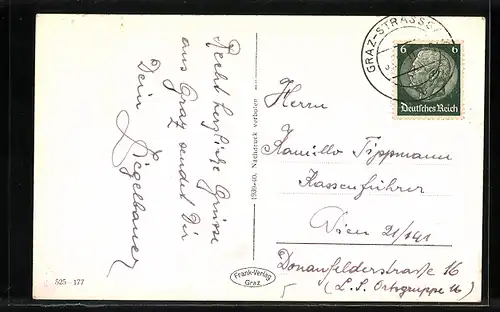 Recht herzliche Grüsse
aus Graz sendet Dir
Dein
Siegelbauer
1939-40. Nachdruck verboten
525 - 177
Frank-Verlag
Graz
GRAZ-STRASSG
6 6
Deutsches Reich
Herrn
Kamillo Tippmann
Kassenführer
Wien 21/141
Donaufelderstraße 16
(L.S. Ortsgruppe u)